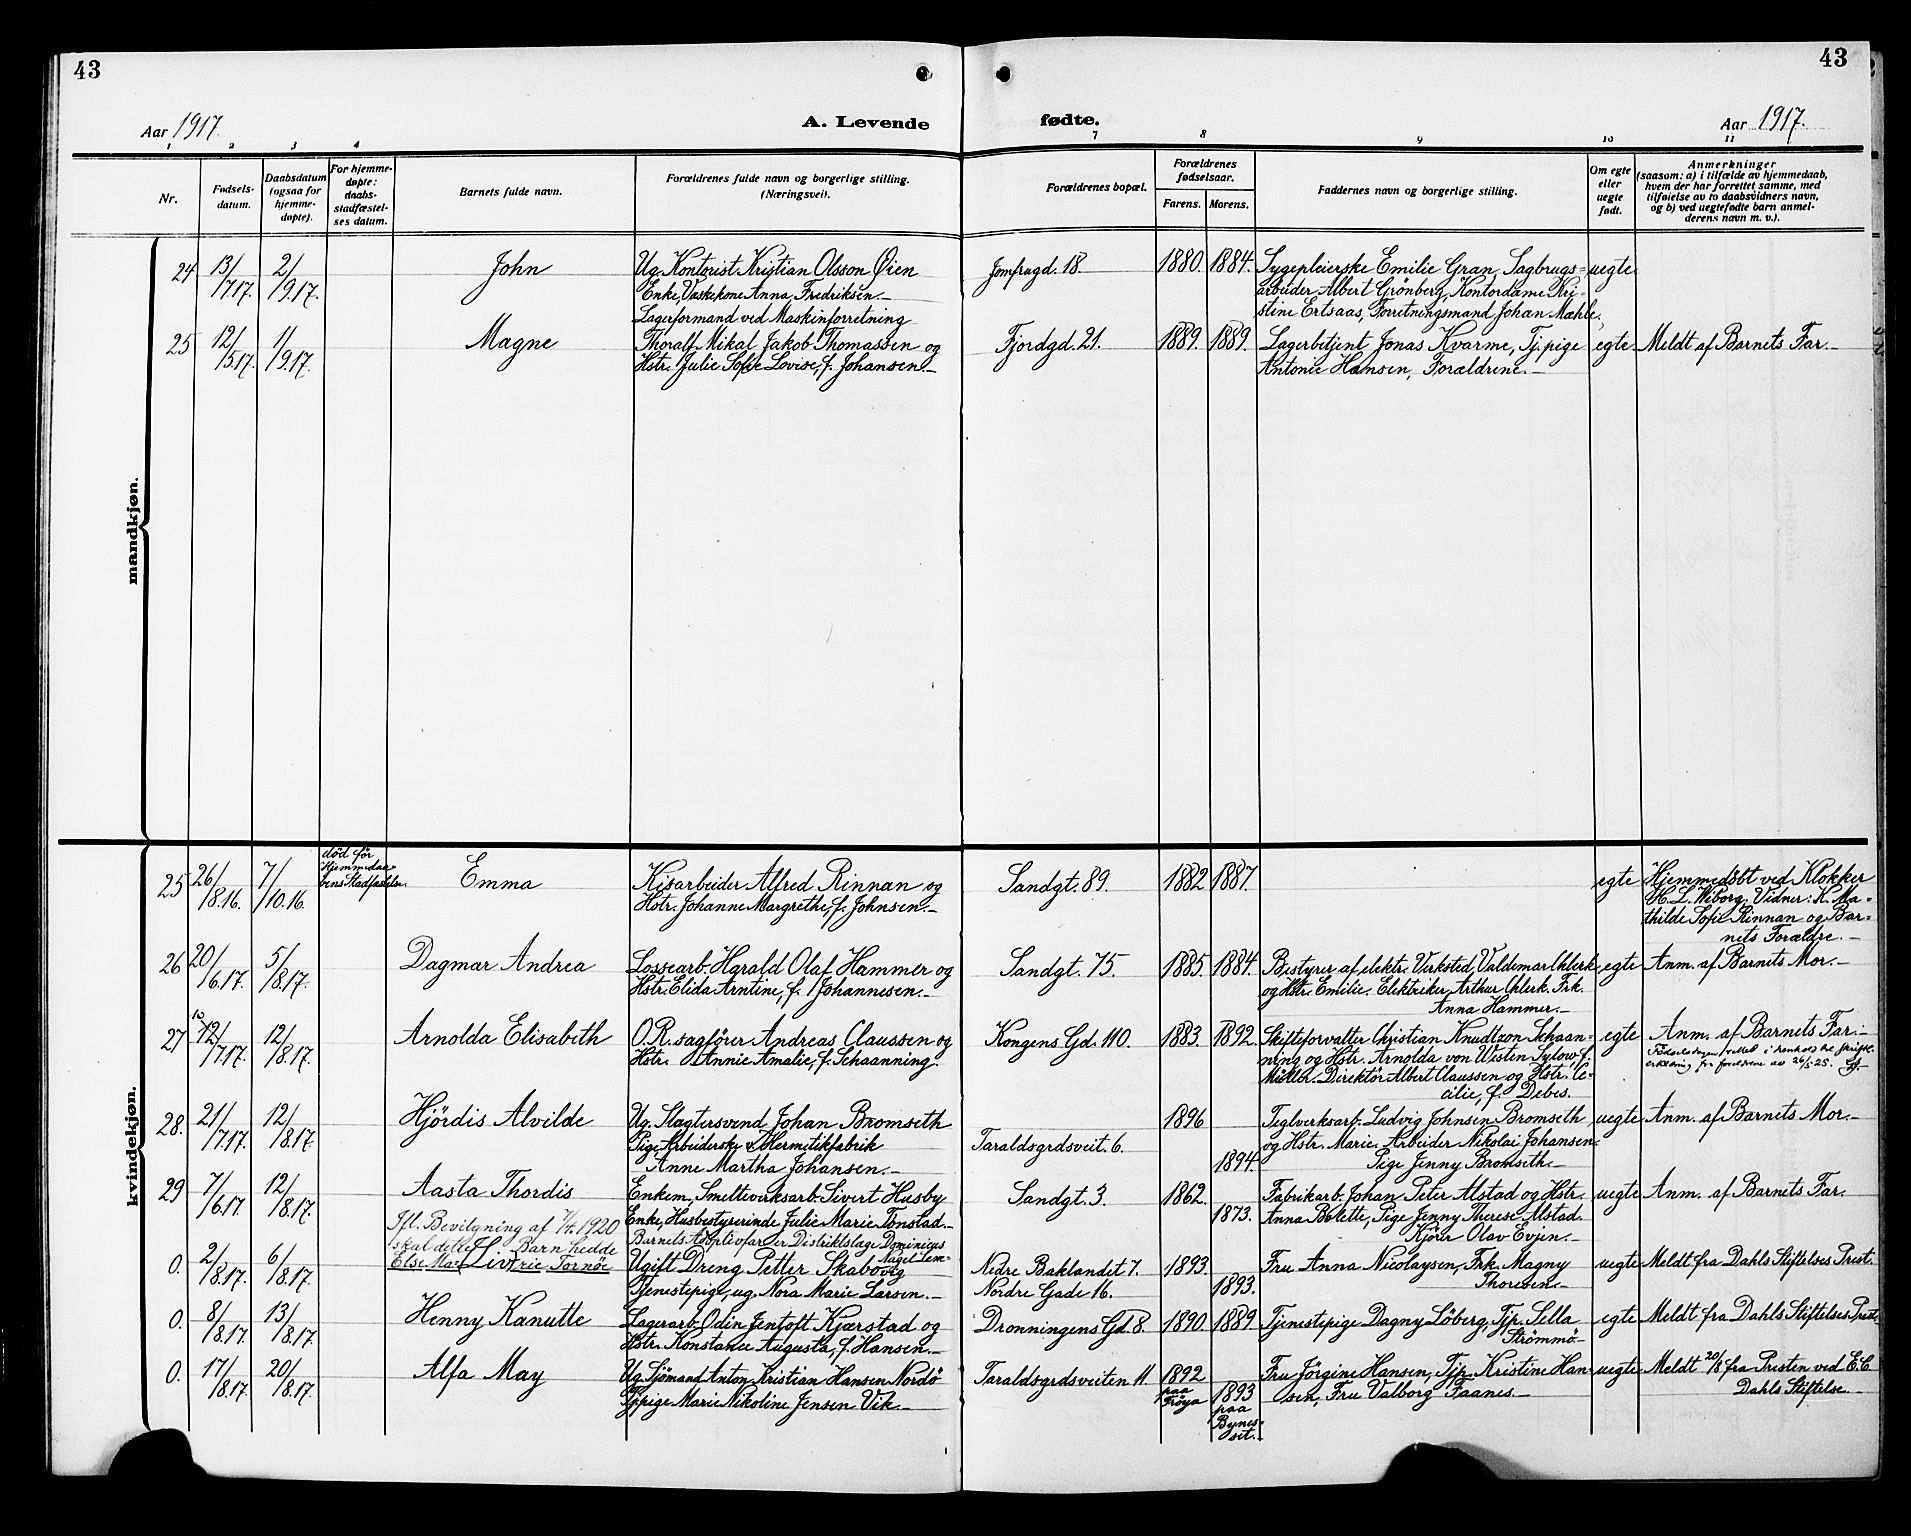 43
43
Aar 1917
A. Levende
fødte.
Aar 1917.
1 2 3 4 7 8 9 10 11
Nr.
Fødsels-
datum.
Daabsdatum
(ogsaa for
hjemme-
døpte).
For hjemme-
døpte:
daabs-
stadfæstel-
ses datum.
Barnets fulde navn.
Forældrenes fulde navn og borgerlige stilling.
(Næringsvei).
Forældrenes bopæl.
Forældrenes
fødselsaar.
Farens. Morens.
Faddernes navn og borgerlige stilling.
Om egte
eller
uegte
født.
Anmerkninger
(saasom: a) i tilfælde av hjemmedaab,
hvem der har forrettet samme, med
tilføielse av to daabsvidners navn,
og b) ved uegtefødte barn anmel-
derens navn m. v.).
mandkjøn.
24 13/7.17. 2/9.17. John
Ug. Kontorist Kristian Olsson Øien
Enke Vaskekone Anna Fredriksen.
Jomfrugd. 18. 1880. 1884.
Sygepleierske Emilie Gran, Sagbrugs=
arbeider Albert Grönberg, Kontordame Kri=
stine Ertsaas, Forretningsmand Johan Mæhle.
uegte
25 12/5.17. 1/9.17. Magne
Lagerformand ved Maskinforretning
Thoralf Mikal Jakob Thomassen og
Hstr. Julie Sofie Lovise, f. Johansen.
Fjordgd. 21. 1889. 1889.
Lagerbetjent Jonas Kvarme, Tj.pige
Antonie Hansen, Forældrene.
egte Meldt af Barnets Far.
kvindekjøn.
25 26/8.16. 7/10.16.
död för
Hjemmedaa=
bens Stadfæstelse.
Emma
Kisarbeider Alfred Rinnan og
Hstr. Johanne Margrethe, f. Johnsen.
Sandgt. 89. 1882 1887.
egte Hjemmedöbt ved Klokker
H. L. Wiborg. Vidner: K. Ma=
thilde Sofie Rinnan og Bar=
nets Forældre.
26 20/6.17. 5/8.17. Dagmar Andrea
Lossearb. Harald Olaf Hammer og
Hstr. Elida Arntine, f. Johannesen.
Sandgt. 75. 1885. 1884.
Bestyrer af elektr. Verksted Valdemar Ohlerk
og Hstr. Emilie. Elektriker Arthur Ohlerk. Frk.
Anna Hammer.
egte Anm. af Barnets Mor.
27 12/7.17. 12/8.17. Arnolda Elisabeth
O.R. sagförer Andreas Claussen og
Hstr. Annie Amalie, f. Schaanning.
Kongens Gd. 110. 1883. 1892.
Skifteforvalter Christian Knudtzon Schaan=
ning og Hstr. Arnolda von Westen Sylow f.
Müller. Direktör Albert Claussen og Hstr. Ce=
cilie, f. Debes.
egte Anm. af Barnets Far.
Födselsdagen rettet i henhold til skriftl.
erklæring fra foreldrene av 26/5-25.
28. 21/7.17. 12/8.17. Hjördis Alvilde
Ug. Slagtersvend Johan Bromseth
Pige, Arbeiderske v. Hermetikfabrik
Anne Martha Johansen.
Taraldsgrdsveit. 6. 1896 1894.
Teglverksarb. Ludvig Johnsen Bromseth
og Hstr. Marie. Arbeider Nikolai Johansen.
Pige Jenny Bromseth.
uegte Anm. af Barnets Mor.
29 7/6.17. 12/8.17. Aasta Thordis
Enkem. Smelteverksarb. Sivert Husby
Enke, Husbestyrerinde Julie Marie Tönstad.
Sandgt. 3. 1862. 1873.
Fabrikarb. Johan Peter Alstad og Hstr.
Anna Bolette, Pige Jenny Therese Alstad
Kjörer Olav Evjen.
uegte Anm. af Barnets Far.
0. 2/8.17. 6/8.17.
Ifl. Bevilgning af 7/4. 1920
skal dette Barn hedde
Else Marie Tornöe
Liv
Barnets Adoptivfar er Distriktslæge Dominicus
Nagel Lem=
Ugift Dreng Petter Skabovig
Tjenestepige, ug. Nora Marie Larsen.
Nedre Baklandet 7. 1893.
Nordre Gade 16. 1893.
Fru Anna Nicolaysen, Frk. Magny
Thoresen.
uegte Meldt fra Dahls Stiftelses Prest.
0. 8/8.17. 13/8.17. Henny Kanutte
Lagerarb. Odin Jentoft Kjærstad og
Hstr. Konstance Augusta, f. Hansen.
Dronningens Gd. 8. 1890. 1889
Tjenestepige Dagny Löberg, Tjp. Sella
Strömmö
egte Meldt fra Dahls Stiftelses Prest.
0. 17/8.17. 20/8.17. Alfa May
Ug. Sjömand Anton Kristian Hansen Nordö
Tj.pige Marie Nikoline Jensen Vik.
Taraldsgrdsveiten 11. 1892
paa
Fröya
1893
paa
Bynes=
set.
Fru Jörgine Hansen, Tjp. Kristine Han=
sen, Fru Valborg Faanes.
uegte Meldt 20/8 fra Presten ved E.C.
Dahls Stiftelse